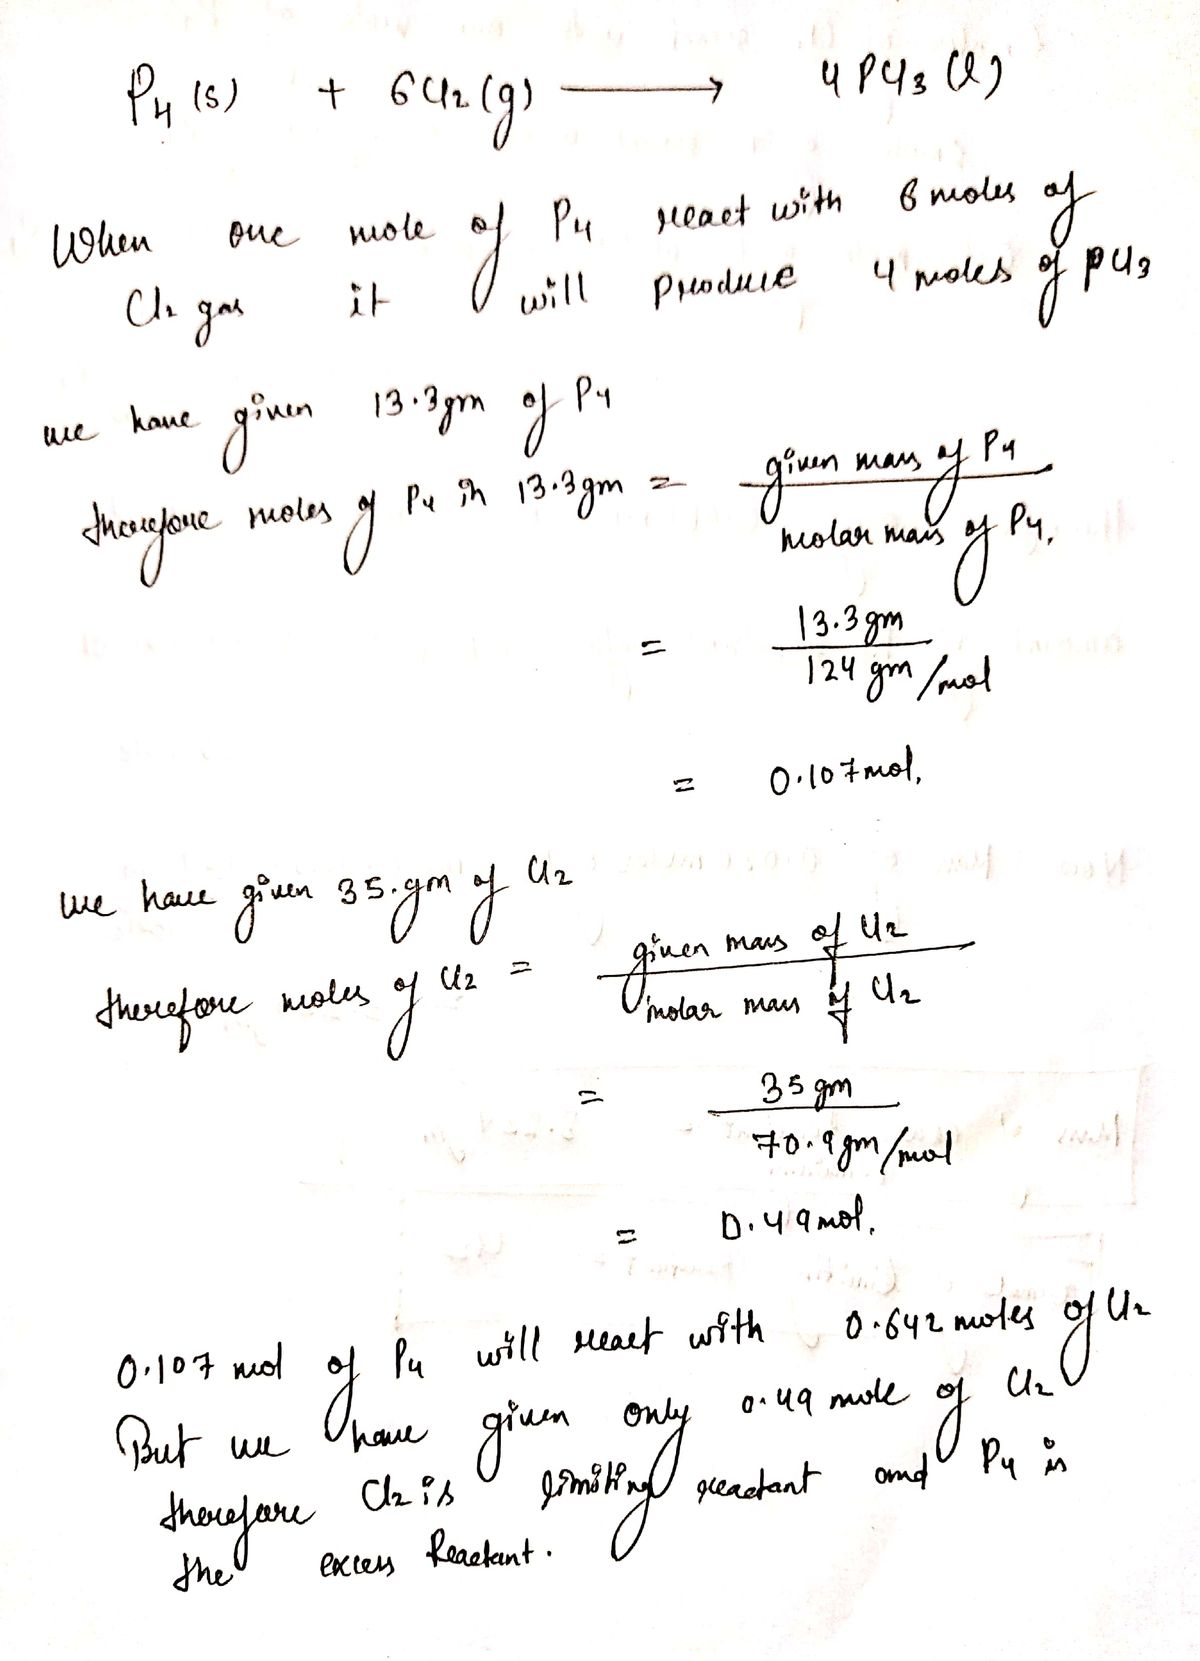 P4 (s) + 6Cl2 (g) ⟶ 4PCl3 (l)
When one mole of P4 react with 6 moles of
Cl2 gas it will produce 4 moles of PCl3
we have given 13.3gm of P4
therefore moles of P4 in 13.3gm = given mass of P4 / molar mass of P4.
= 13.3gm / 124 gm/mol
= 0.107mol.
we have given 35.gm of Cl2
therefore moles of Cl2 = given mass of Cl2 / molar mass of Cl2
= 35gm / 70.9gm/mol
= 0.49mol.
0.107 mol of P4 will react with 0.642 moles of Cl2
But we have given only 0.49 mole of Cl2
therefore Cl2 is limiting reactant and P4 is
the excess Reactant.